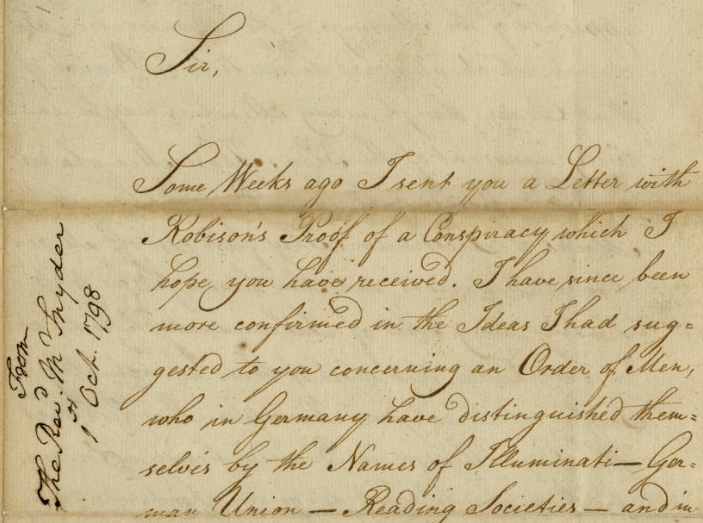 Sir,
Some Weeks ago I sent you a Letter with
Robison's Proof of a Conspiracy which I
hope you have received. I have since been
more confirmed in the Ideas I had sug=
gested to you concerning an Order of Men,
who in Germany have distinguished them=
selves by the Names of Illuminati — Ger=
man Union — Reading Societies — and in
From
The Revd. Mr Snyder
1st Oct. 1798